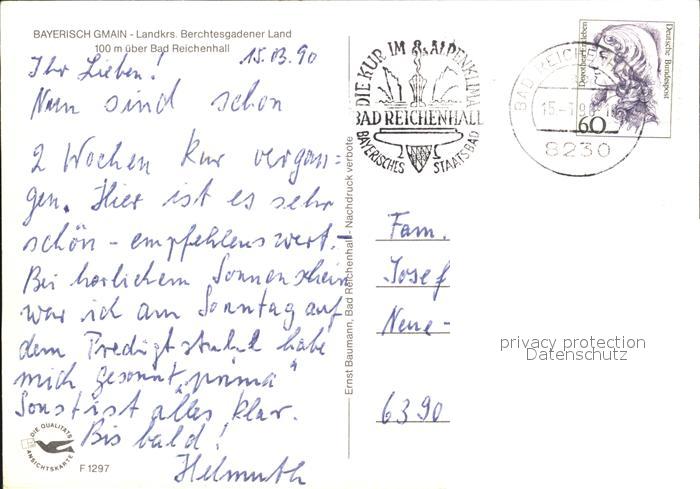 BAYERISCH GMAIN - Landkrs. Berchtesgadener Land
100 m über Bad Reichenhall
15.03.90
Ihr Lieben!
Nun sind schon
2 Wochen Kur vergan=
gen. Hier ist es sehr
schön - empfehlenswert.-
Bei herlichem Sonnenschein
war ich am Sonntag auf
dem Predigtstuhl habe
mich gesonnt „prima"
Sonst ist alles klar.
Bis bald!
Helmuth
DIE QUALITÄTS
ANSICHTSKARTE
F 1297
Ernst Baumann, Bad Reichenhall - Nachdruck verboten
DIE KUR IM ALPENKLIMA
BAD REICHENHALL
BAYERISCHES STAATSBAD
BAD REICHENHALL
8230
Dorothea Erxleben
Deutsche Bundespost
60
Fam.
Josef
Neue-
6390
privacy protection
Datenschutz